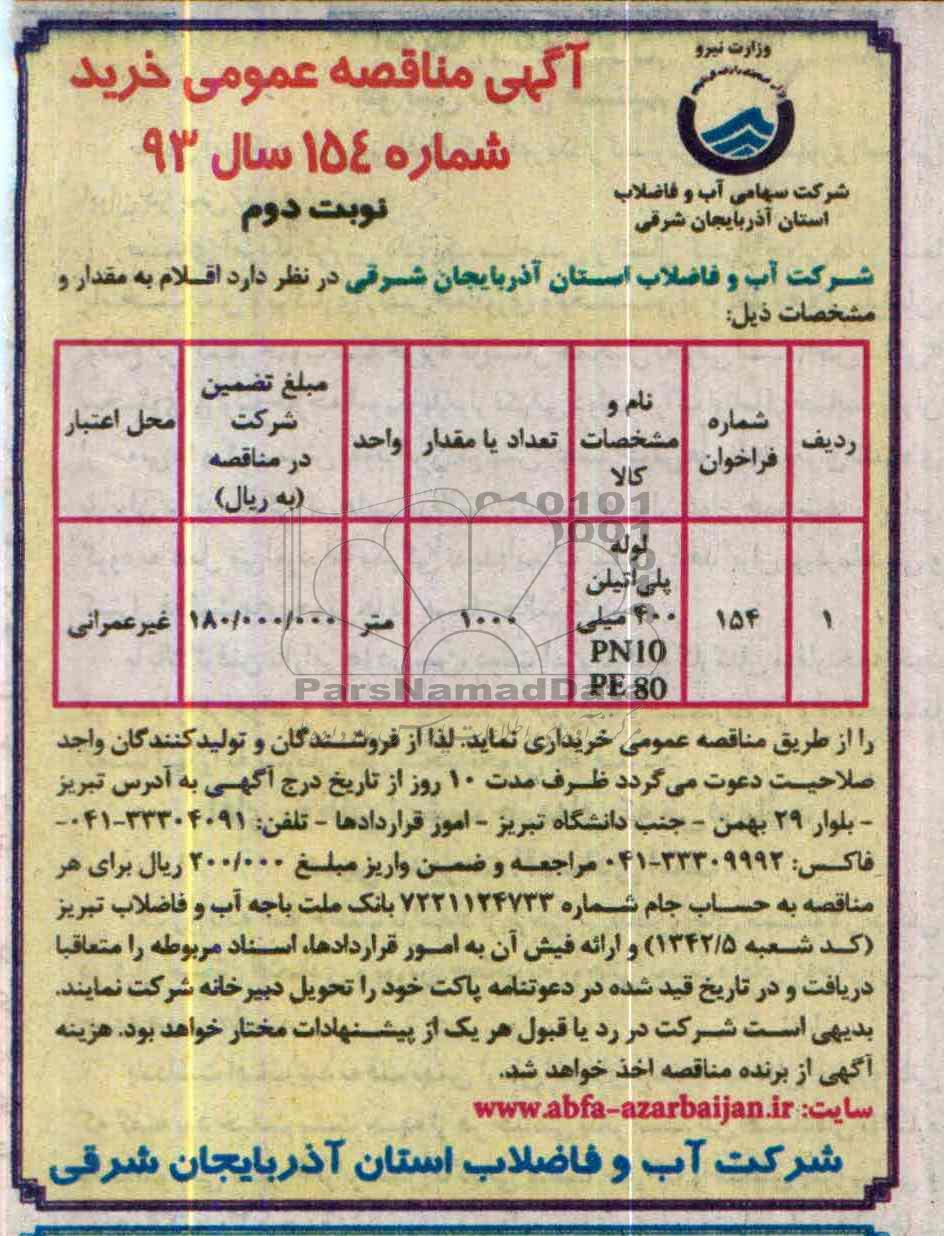 وزارت نیرو
شرکت سهامی آب و فاضلاب
استان آذربایجان شرقی
آگهی مناقصه عمومی خرید
شماره ۱۵۴ سال ۹۳
نوبت دوم
شرکت آب و فاضلاب استان آذربایجان شرقی در نظر دارد اقلام به مقدار و
مشخصات ذیل:
ردیف | شماره فراخوان | نام و مشخصات کالا | تعداد یا مقدار | واحد | مبلغ تضمین شرکت در مناقصه (به ریال) | محل اعتبار
۱ | ۱۵۴ | لوله پلی‌اتیلن ۴۰۰ میلی PN10 PE 80 | ۱۰۰۰ | متر | ۱۸۰/۰۰۰/۰۰۰ | غیرعمرانی
ParsNamadData
را از طریق مناقصه عمومی خریداری نماید. لذا از فروشندگان و تولیدکنندگان واجد
صلاحیت دعوت می‌گردد ظرف مدت ۱۰ روز از تاریخ درج آگهی به آدرس تبریز
- بلوار ۲۹ بهمن - جنب دانشگاه تبریز - امور قراردادها - تلفن: ۳۳۳۰۴۰۹۱-۰۴۱-
فاکس: ۳۳۳۰۹۹۹۲-۰۴۱ مراجعه و ضمن واریز مبلغ ۲۰۰/۰۰۰ ریال برای هر
مناقصه به حساب جام شماره ۷۲۲۱۱۲۴۷۳۳ بانک ملت باجه آب و فاضلاب تبریز
(کد شعبه ۱۳۴۲/۵) و ارائه فیش آن به امور قراردادها، اسناد مربوطه را متعاقبا
دریافت و در تاریخ قید شده در دعوتنامه پاکت خود را تحویل دبیرخانه شرکت نمایند.
بدیهی است شرکت در رد یا قبول هر یک از پیشنهادات مختار خواهد بود. هزینه
آگهی از برنده مناقصه اخذ خواهد شد.
سایت: www.abfa-azarbaijan.ir
شرکت آب و فاضلاب استان آذربایجان شرقی